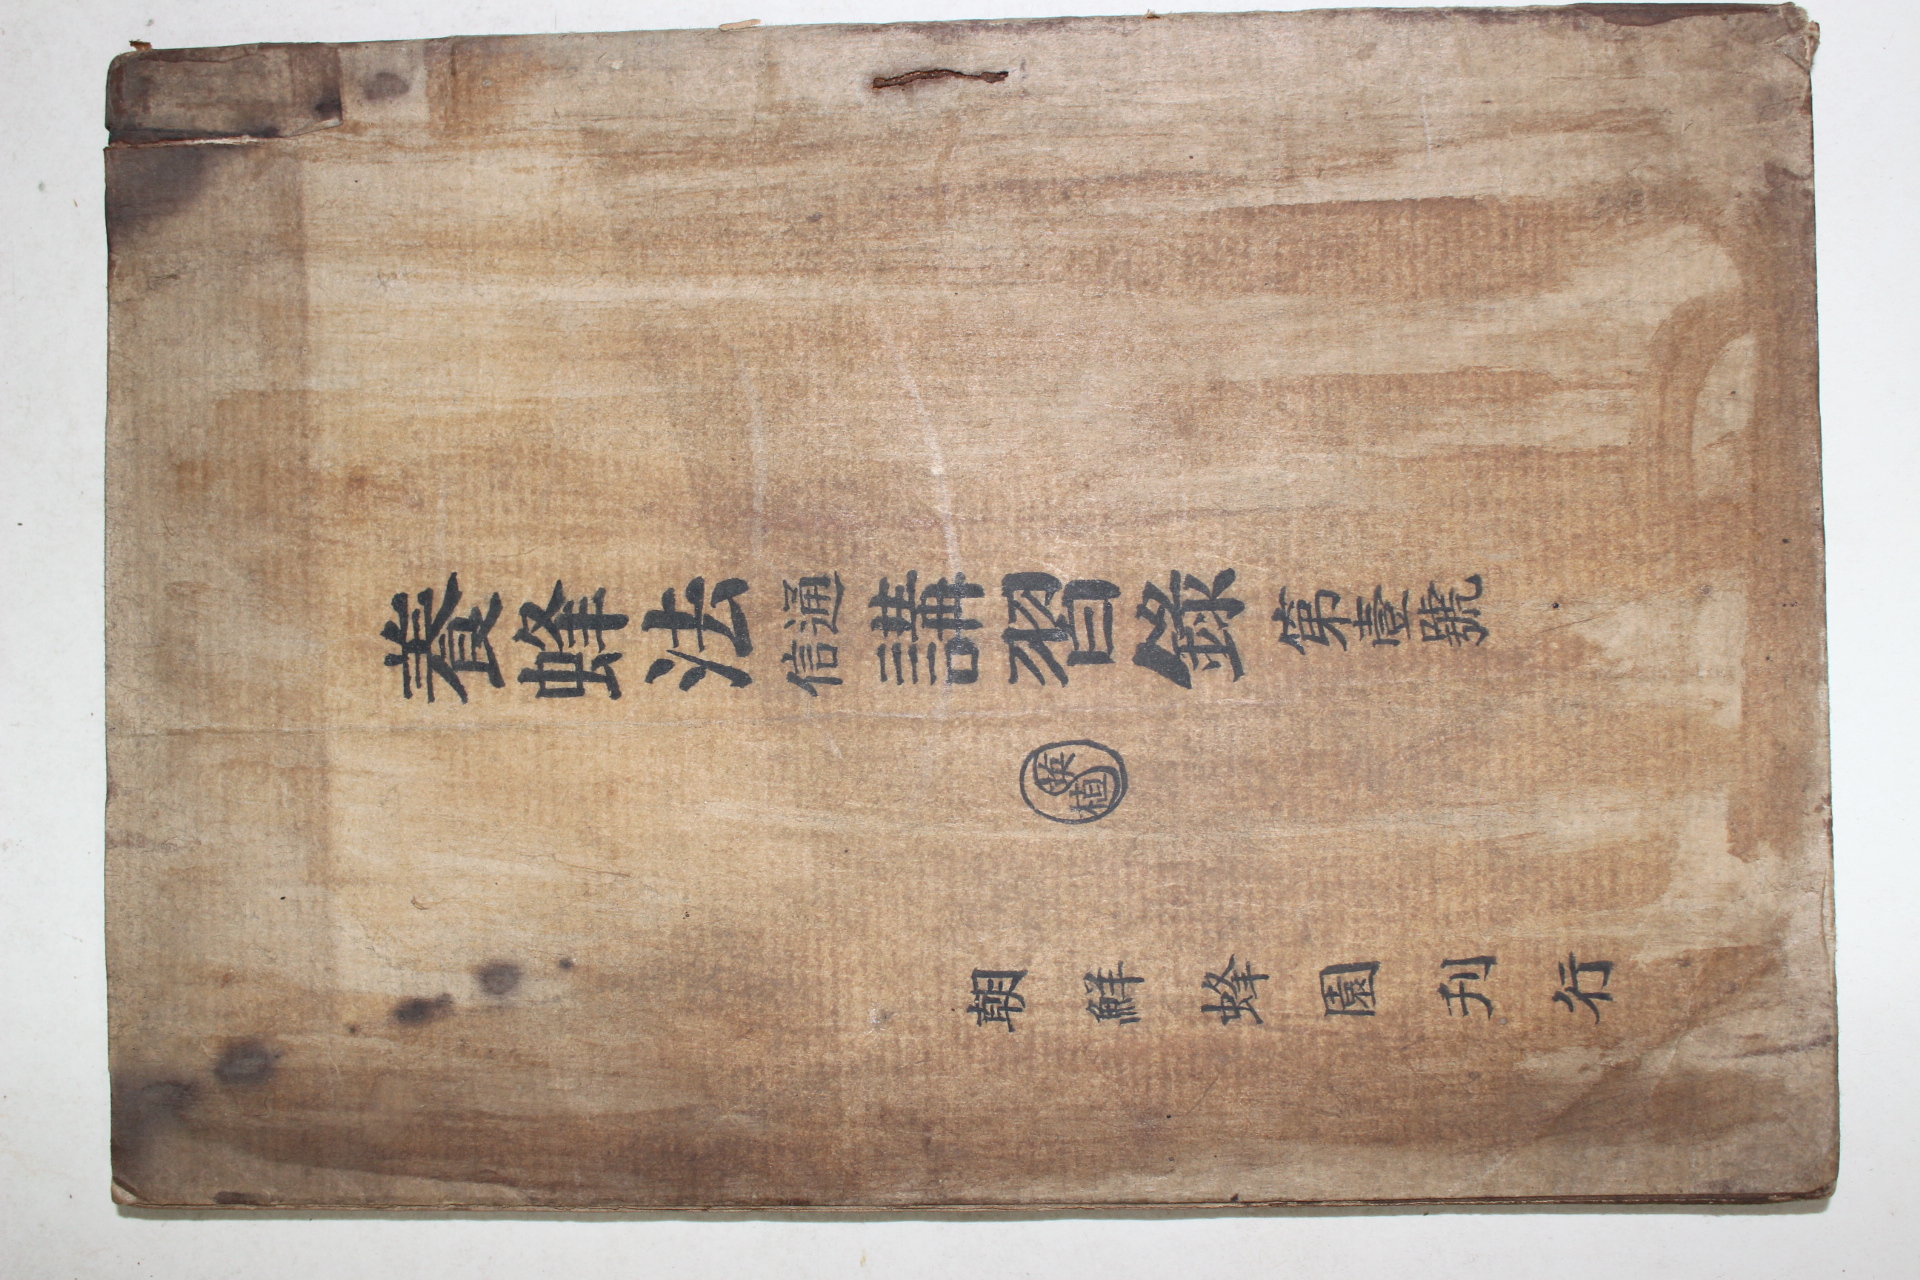 養蜂法通信講習錄 第壹號
植
朝鮮蜂園刊行